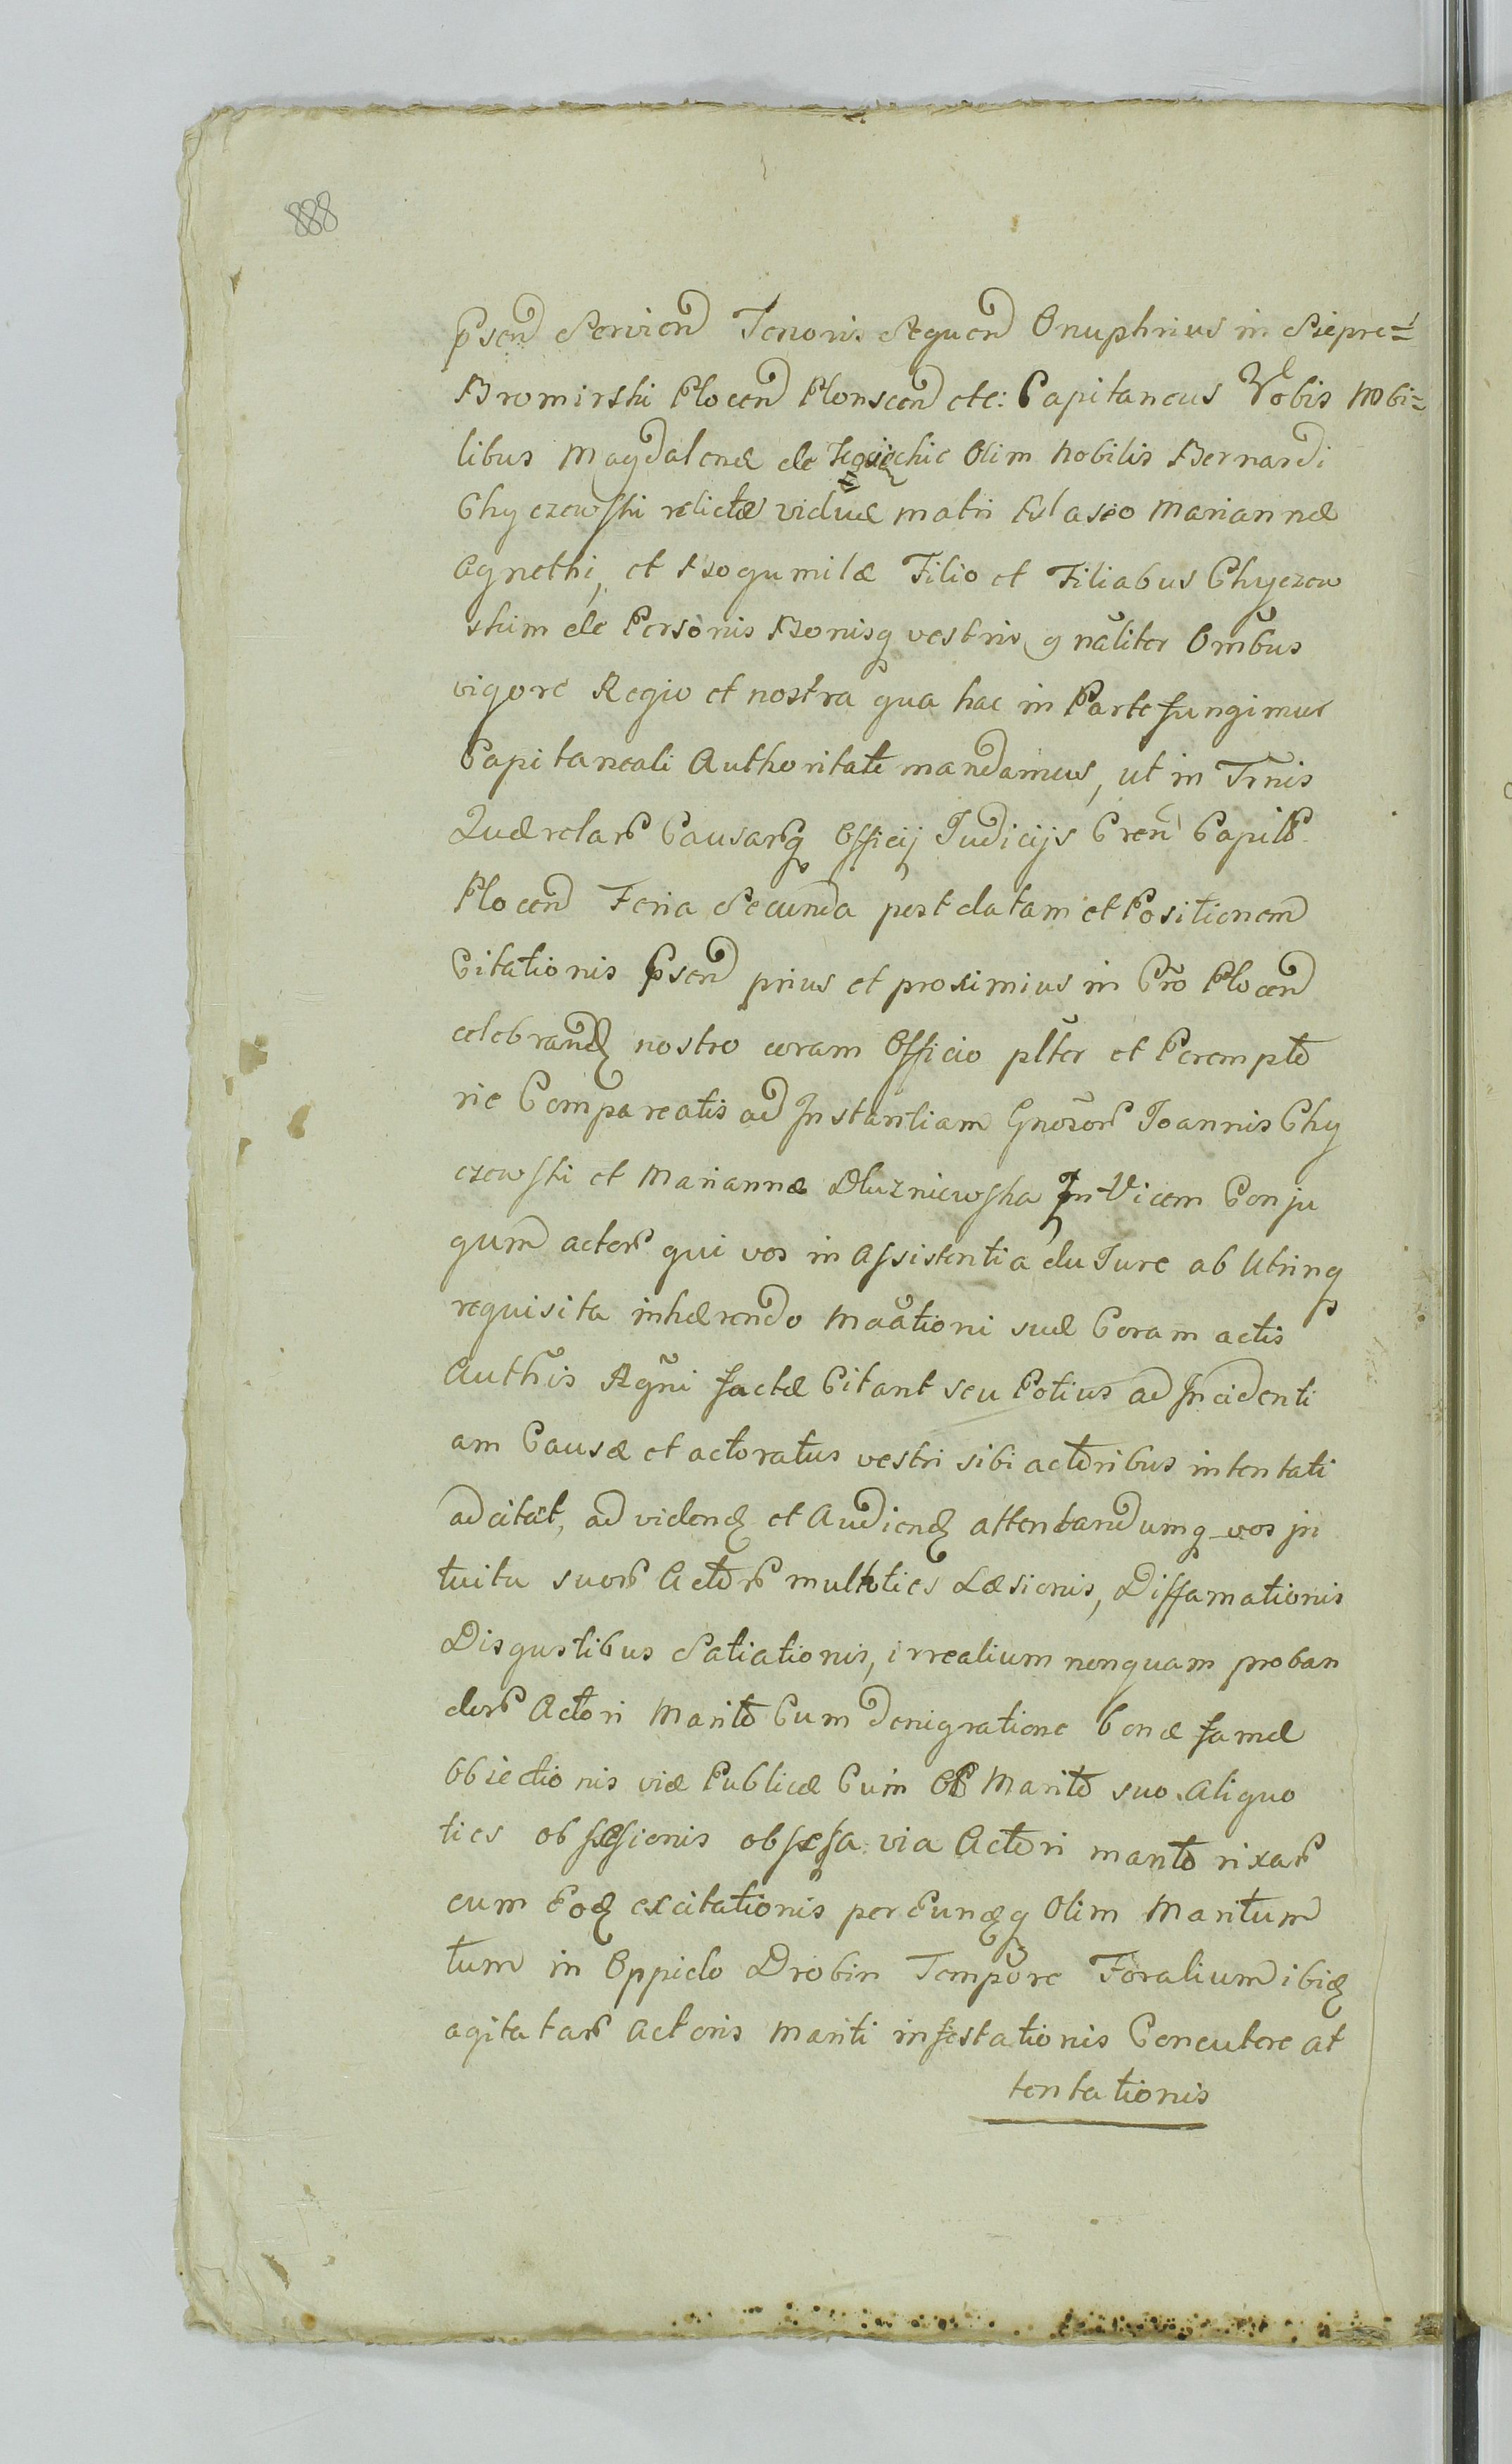 888
Psen Servien Tenoris Sequen Onuphrius in Siepre=
Bromirski Plocen Plonscen etc: Capitaneus Vobis Nobi=
libus Magdalenæ de Olim Nobilis Bernardi
Chyczewski relictæ viduæ matri Blasio Mariannæ
Agnethi, et Bogumilæ Filio et Filiabus Chyczew
skim de Personis Bonisq vestris gnãliter Omĩbus
vigore Regio et nostra qua hac in Parte fungimur
Capitaneali Authoritate mandamus, ut in Trnis
Quærelar Causarq Officij Judicijs Cren Capit
Plocen Feria Secunda post datam et Positionem
Citationis Psen prius et proximius in Cro Plocen
celebrand nostro coram Officio plter et Perempto
rie Compareatis ad Instantiam Gnosor Joannis Chy
czewski et Mariannæ Dluzniewska In Vicem Conju
gum actor qui vos in Assistentia du Jure ab Utrinq
requisita inhærendo Maãtioni suæ Coram actis
Authis Rgni factæ Citant seu Potius ad Incidenti
am Causæ et actoratus vestri sibi actoribus intentati
adcitãt, ad videnđ et Audienđ attentandumq vos in
tuitu suor Actor multoties Læsionis, Diffamationis
Disgustibus Satiationis, irrealium nonquam proban
dor Actori Marito Cum denigratione bonæ famæ
Obiectionis viæ Publicæ Cum Marito suo Aliquo
ties obsessionis obsessa via Actori marito rixar
cum Eođ excitationis per Eunđq Olim Maritum
tum in Oppido Drobin Tempore Foralium ibiđ
agitatar actoris mariti infestationis Concutere at
tentationis